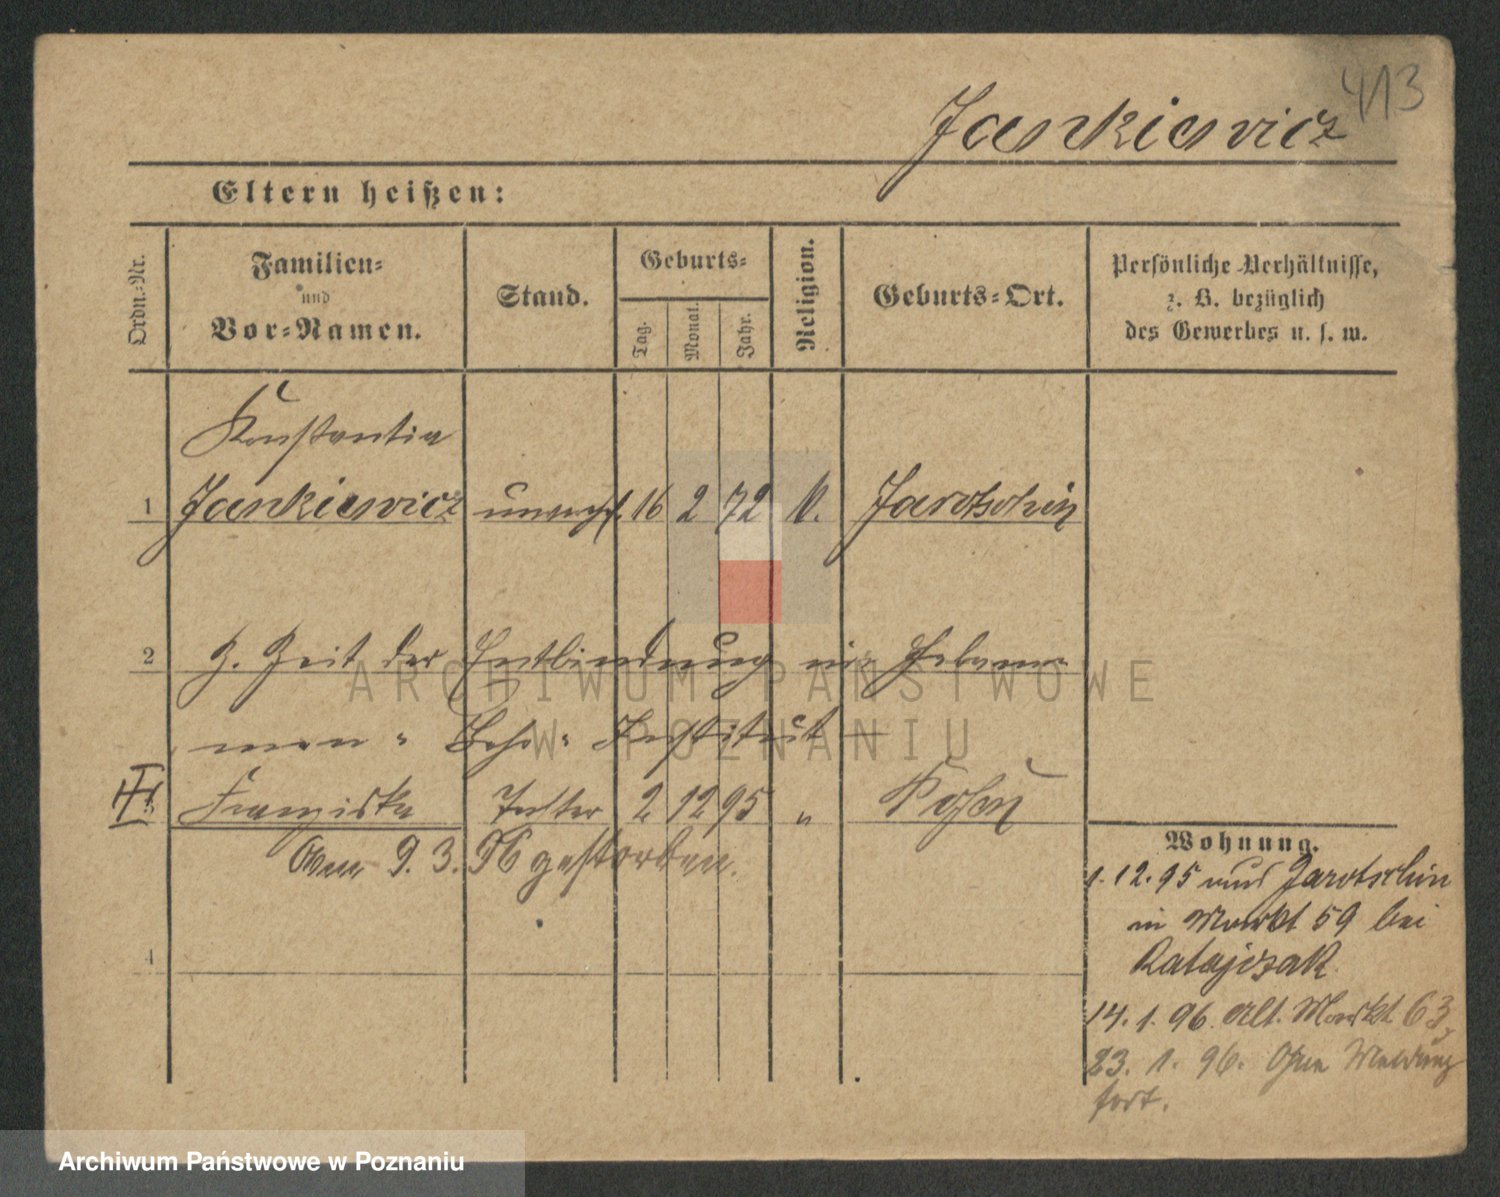 413
Jankiewicz
Eltern heißen:
Ordn.-Nr.
Familien-
und
Vor-Namen.
Stand.
Geburts-
Tag.
Monat.
Jahr.
Religion.
Geburts-Ort.
Persönliche Verhältnisse,
z. B. bezüglich
des Gewerbes u. s. w.
Konstantia
1 Jankiewicz unvereh. 16 2 72 k. Jarotschin
2 Z. Zeit der Entbindung im Hebam-
men- Lehr- Institut
3 Franziska Tochter 2 12 95 " Posen
9. 3. 96 gestorben.
4
Wohnung.
1.12.95 aus Jarotschin
in Markt 59 bei
Ratajczak
14. 1. 96. Alt. Markt 63,
23. 1. 96. Ohne Meldung
fort.
ARCHIWUM PAŃSTWOWE
W POZNANIU
Archiwum Państwowe w Poznaniu